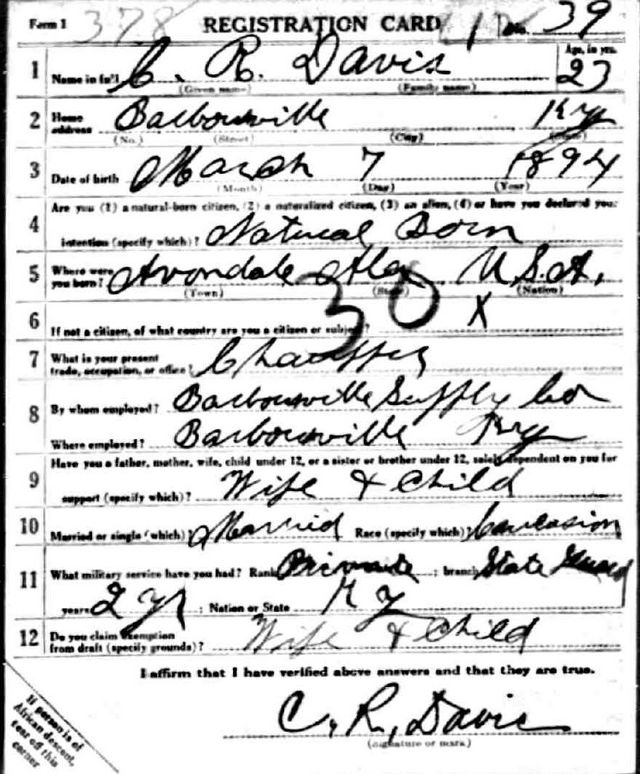 Form 1 378 REGISTRATION CARD No. 39
1 Name in full C. R. Davis Age, in yrs. 23
(Given name) (Family name)
2 Home address Barbourville Ky
(No.) (Street) (City) (State)
3 Date of birth March 7 1894
(Month) (Day) (Year)
4 Are you (1) a natural-born citizen, (2) a naturalized citizen, (3) an alien, (4) or have you declared your
intention (specify which)? Natural Born
5 Where were you born? Avondale Ala U.S.A.
(Town) (State) (Nation)
30
6 If not a citizen, of what country are you a citizen or subject? X
7 What is your present trade, occupation, or office? Chauffer
8 By whom employed? Barbourville Supply Co
Where employed? Barbourville Ky
9 Have you a father, mother, wife, child under 12, or a sister or brother under 12, solely dependent on you for
support (specify which)? Wife & Child
10 Married or single (which)? Married Race (specify which)? Caucasion
11 What military service have you had? Rank Private ; branch State Guard
years 2 yr ; Nation or State Ky
12 Do you claim exemption from draft (specify grounds)? Wife & Child
I affirm that I have verified above answers and that they are true.
C. R. Davis
(Signature or mark)
If person is of
African descent,
tear off this
corner